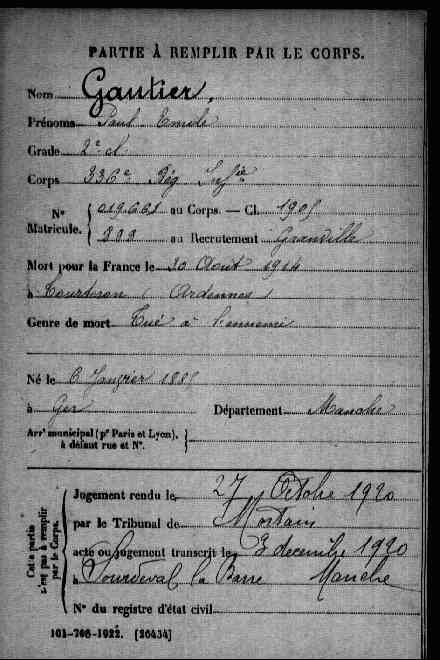 PARTIE À REMPLIR PAR LE CORPS.
Nom Gautier,
Prénoms Paul Emile
Grade 2e cl
Corps 336e Rég Infie
Nº Matricule. { 019661 au Corps. — Cl. 1905
au Recrutement Granville
Mort pour la France le 30 Août 1914
à Tourteron (Ardennes)
Genre de mort Tué à l'ennemi
Né le 6 Janvier 1885
à Ger Département Manche
Arrt municipal (pr Paris et Lyon), à défaut rue et Nº. {
Cette partie n'est pas à remplir par le Corps.
Jugement rendu le 27 Octobre 1920
par le Tribunal de Mortain
acte ou jugement transcrit le 3 decembre 1920
à Sourdeval la Barre Manche
Nº du registre d'état civil
101-708-1922. [26434]